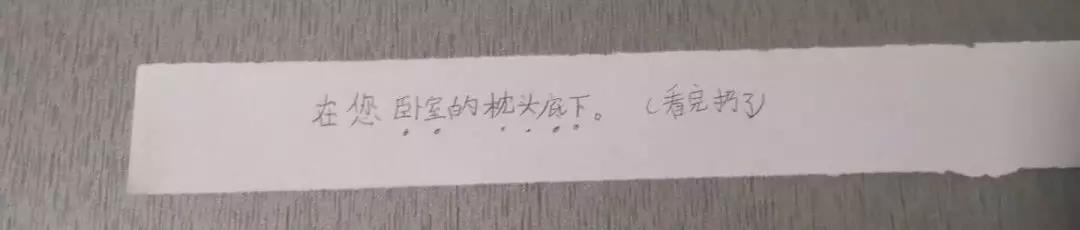 在您卧室的枕头底下。（看完扔了）